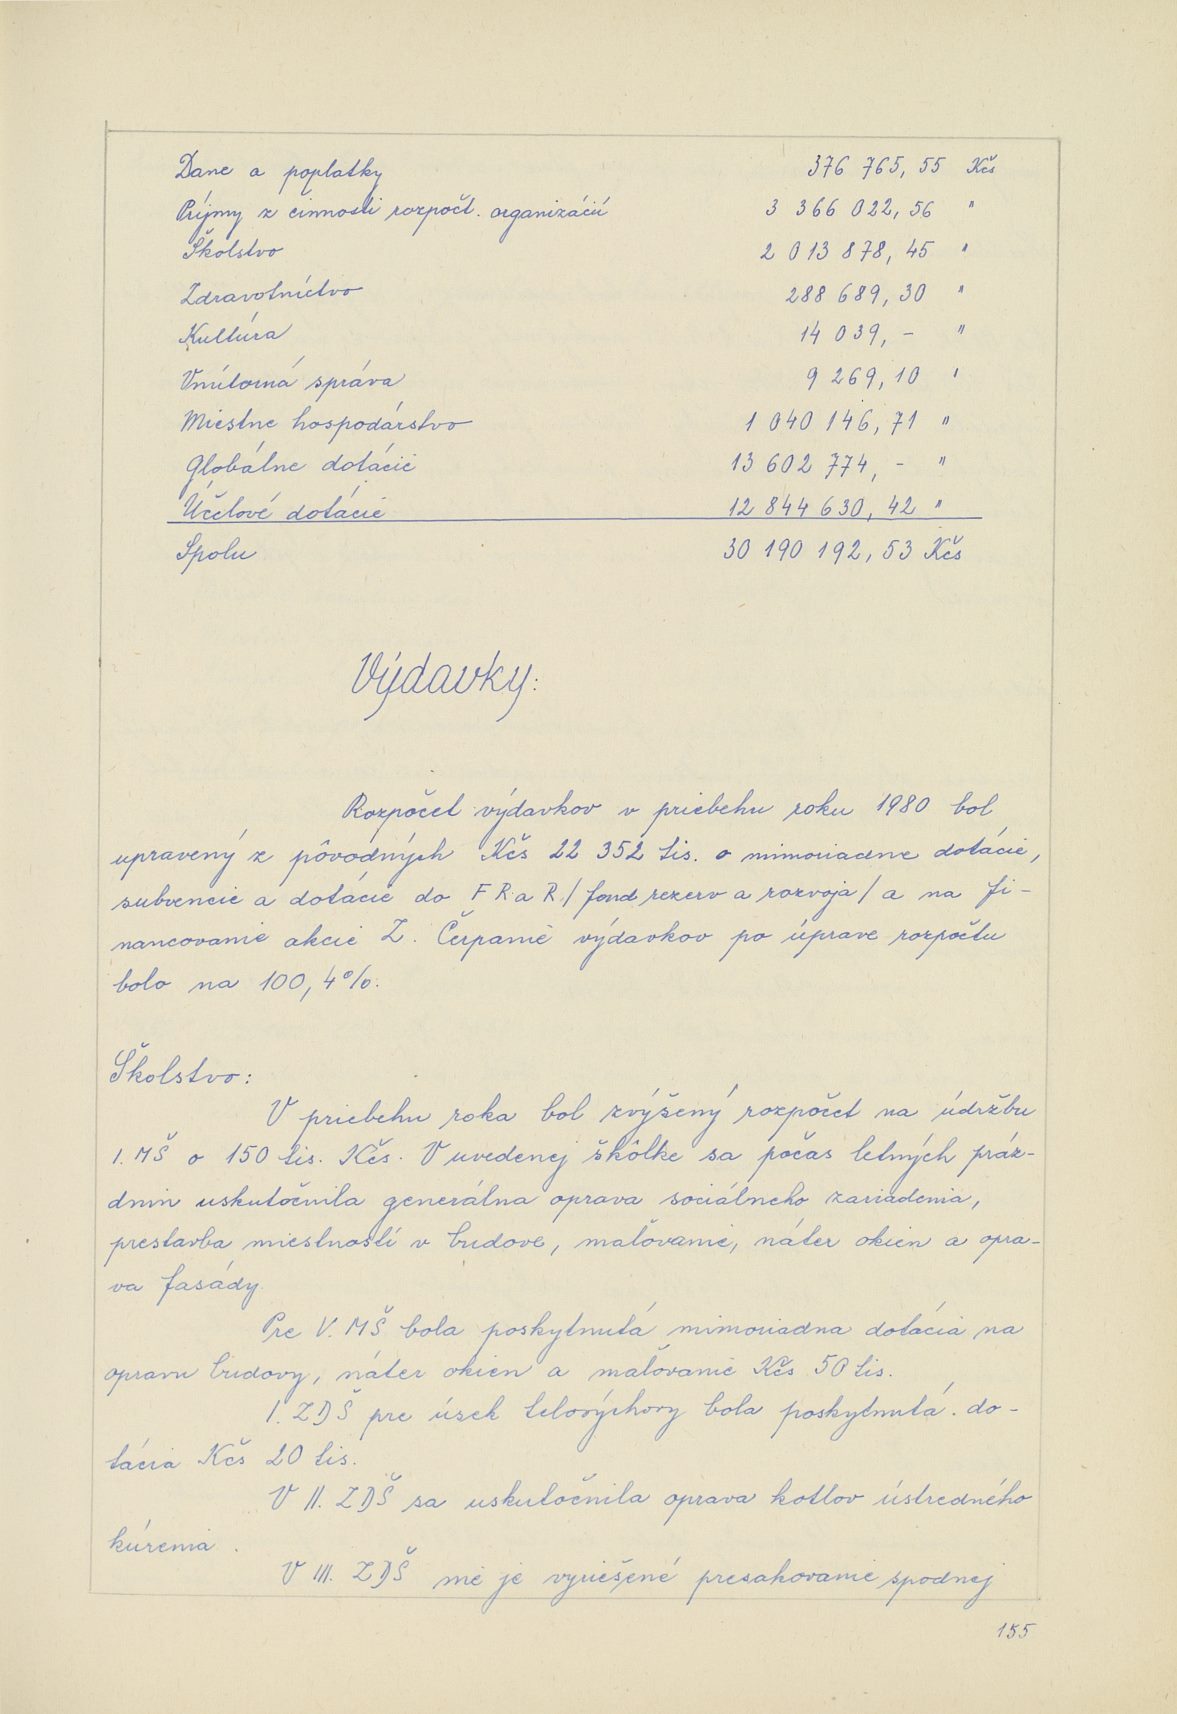 Dane a poplatky 376 765,55 Kčs
Príjmy z činnosti rozpočt. organizácií 3 366 022,56 "
Školstvo 2 013 878,45 "
Zdravotníctvo 288 689,30 "
Kultúra 14 039,- "
Vnútorná správa 9 269,10 "
Miestne hospodárstvo 1 040 146,71 "
Globálne dotácie 13 602 774,- "
Účelové dotácie 12 844 630,42 "
Spolu 30 190 192,53 Kčs
Výdavky:
Rozpočet výdavkov v priebehu roku 1980 bol
upravený z pôvodných Kčs 22 352 tis. o mimoriadne dotácie,
subvencie a dotácie do F R a R /fond rezerv a rozvoja/ a na fi-
nancovanie akcie Z. Čerpanie výdavkov po úprave rozpočtu
bolo na 100,4%.
Školstvo:
V priebehu roka bol zvýšený rozpočet na údržbu
I. MŠ o 150 tis. Kčs. V uvedenej škôlke sa počas letných práz-
dnin uskutočnila generálna oprava sociálneho zariadenia,
prestavba miestností v budove, maľovanie, náter okien a opra-
va fasády.
Pre V. MŠ bola poskytnutá mimoriadna dotácia na
opravu budovy, náter okien a maľovanie Kčs 50 tis.
I. ZDŠ pre úsek telovýchovy bola poskytnutá do-
tácia Kčs 20 tis.
V II. ZDŠ sa uskutočnila oprava kotlov ústredného
kúrenia.
V III. ZDŠ nie je vyriešené presakovanie spodnej
155